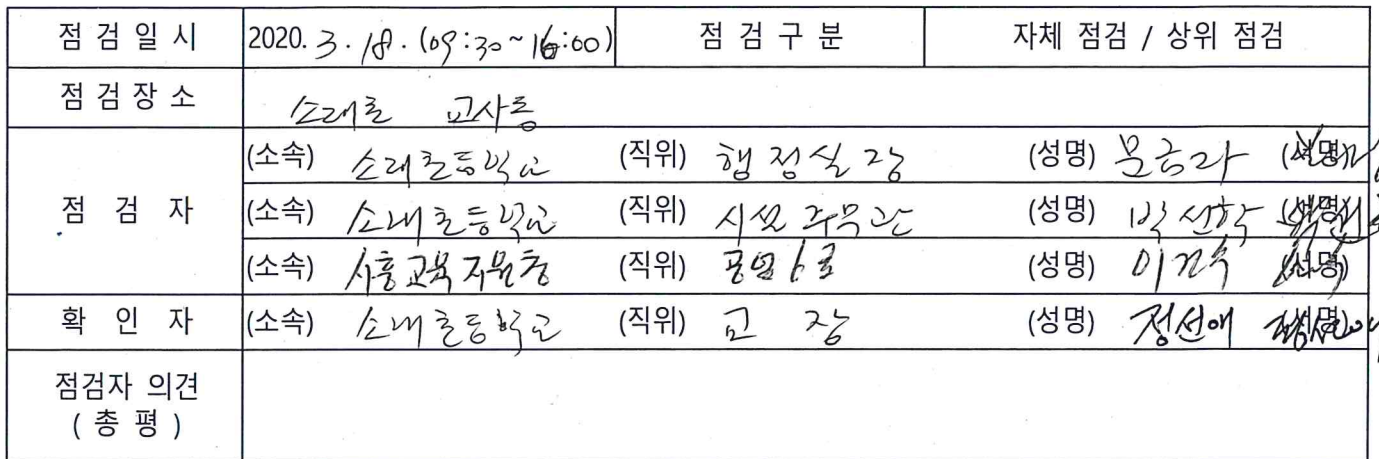 점 검 일 시 2020. 3. 18. (09:30~16:00) 점 검 구 분 자체 점검 / 상위 점검
점 검 장 소 소래초 교사동
(소속) 소래초등학교 (직위) 행정실장 (성명) 문금라 (서명)
점 검 자 (소속) 소래초등학교 (직위) 시설주무관 (성명) 박선학 (서명)
(소속) 시흥교육지원청 (직위) 공업6급 (성명) (서명)
확 인 자 (소속) 소래초등학교 (직위) 교 장 (성명) 정선애 (서명) 정선애
점검자 의견
( 총 평 )